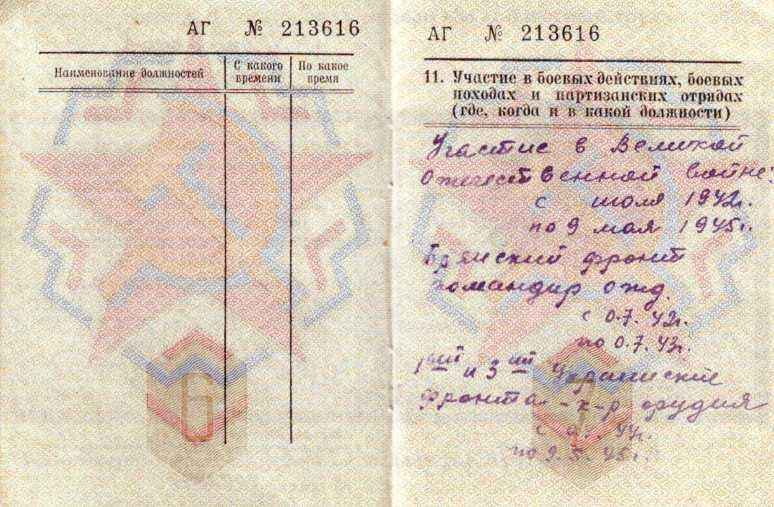 АГ № 213616
Наименование должностей
С какого времени
По какое время
6
АГ № 213616
11. Участие в боевых действиях, боевых
походах и партизанских отрядах
(где, когда и в какой должности)
Участие в Великой
Отечественной войне:
с июля 1942г.
по 9 мая 1945г.
Брянский фронт
командир отд.
с 07.42г.
по 07.43г.
1ый и 3ий Украинские
фронта - к-р орудия
с 44г.
по 9.5.45г.
7